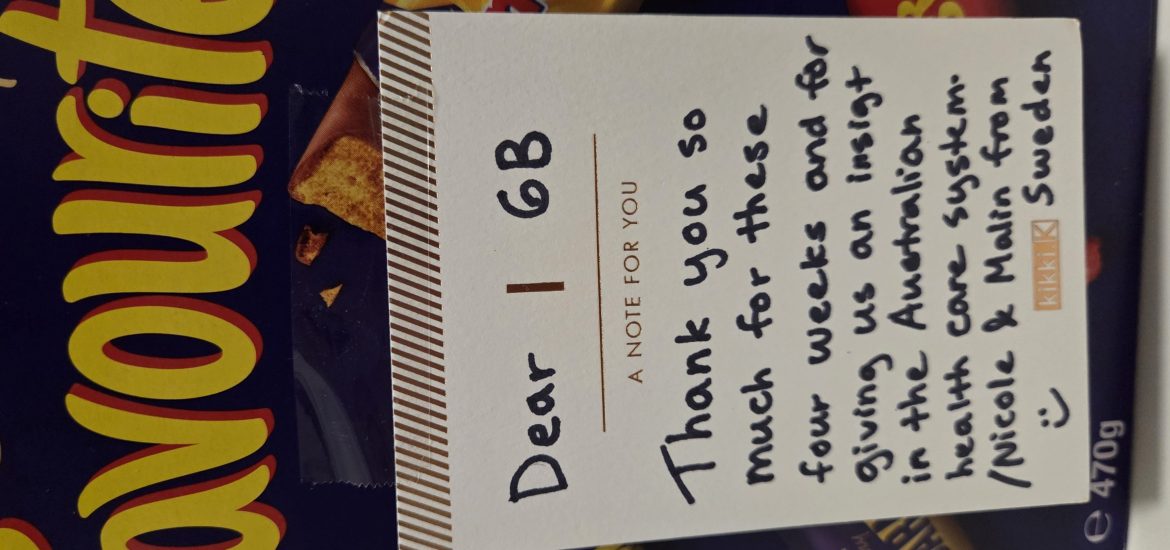 avourite
Dear | 6B
A NOTE FOR YOU
Thank you so
much for these
four weeks and for
giving us an insigt
in the Australian
health care system.
/Nicole & Malin from
:) Sweden
kikki K
e 470g